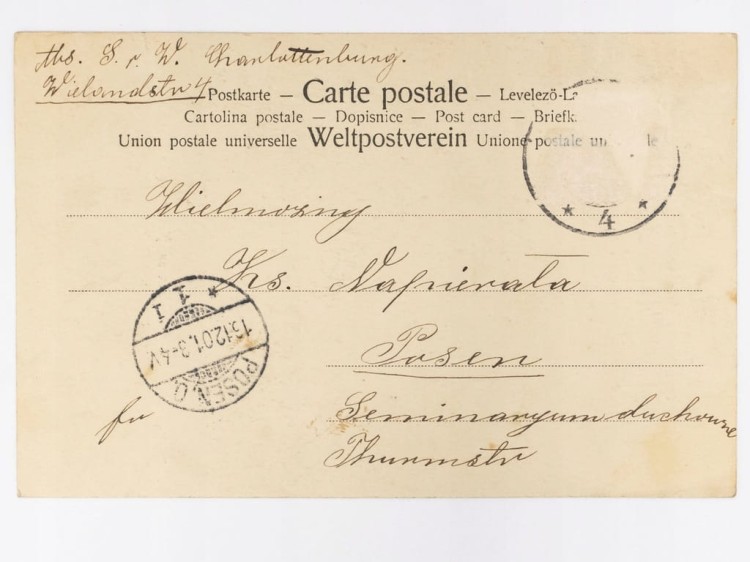 Abs. S. v. W. Charlottenburg.
Wielandstr 4
Postkarte – Carte postale – Levelezö-L
Cartolina postale – Dopisnice – Post card – Briefk
Union postale universelle Weltpostverein Unione postale un le
* 4 *
Wielmożny
Ks. Napierała
Posen
Seminaryum duchowne
Thurmstr
fr
POSEN.O.
13.12.01.3-4V.
* 1 1